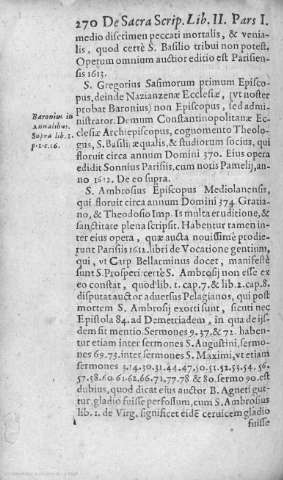 270 De Sacra Scrip. Lib. II. Pars I.
medio discrimen peccati mortalis, & venia-
lis, quod certè S. Basilio tribui non potest.
Operum omnium auctior editio est Parisien-
sis 1613.
S. Gregorius Sasimorum primum Episco-
pus, deinde Nazianzenæ Ecclesiæ, (vt noster
probat Baronius) non Episcopus, sed admi-
Baronius in
nistrator. Demum Constantinopolitanæ Ec-
annalibus.
clesiæ Archiepiscopus, cognomento Theolo-
Supra lib. 1.
gus, S. Basilij æqualis, & studiorum socius, qui
p. 1. c. 16.
floruit circa annum Domini 370. Eius opera
edidit Sonnius Parisiis, cum notis Pamelij, an-
no 1612. De eo supra.
S. Ambrosius Episcopus Mediolanensis,
qui floruit circa annum Domini 374. Gratia-
no, & Theodosio Imp. Is multa eruditione, &
sanctitate plena scripsit. Habentur tamen in-
ter eius opera, quæ aucta nouissimè prodie-
runt Parisiis 1612. libri de Vocatione gentium,
qui, vt Carp Bellarminus docet, manifestè
sunt S. Prosperi certè S. Ambrosij non esse ex
eo constat, quod lib. 1. cap. 7. & lib. 2. cap. 8.
disputat auctor aduersus Pelagianos, qui post
mortem S. Ambrosij exorti sunt, sicuti nec
Epistola 84. ad Demetriadem, in qua de iis-
dem sit mentio. Sermones 9. 37. & 72. haben-
tur etiam inter sermones S. Augustini, sermo-
nes 69. 73. inter sermones S. Maximi, vt etiam
sermones 3. 14. 30. 31. 44. 47. 50. 51. 52. 53. 54. 56.
57. 58. 60. 61. 62. 66. 71. 77. 78 & 80. sermo 90. est
dubius, quod dicat eius auctor B. Agneti gut-
tur, gladio fuisse perfossum, cum S. Ambrosius
lib. 1. de Virg. significet eidē ceruicem gladio
fuisse